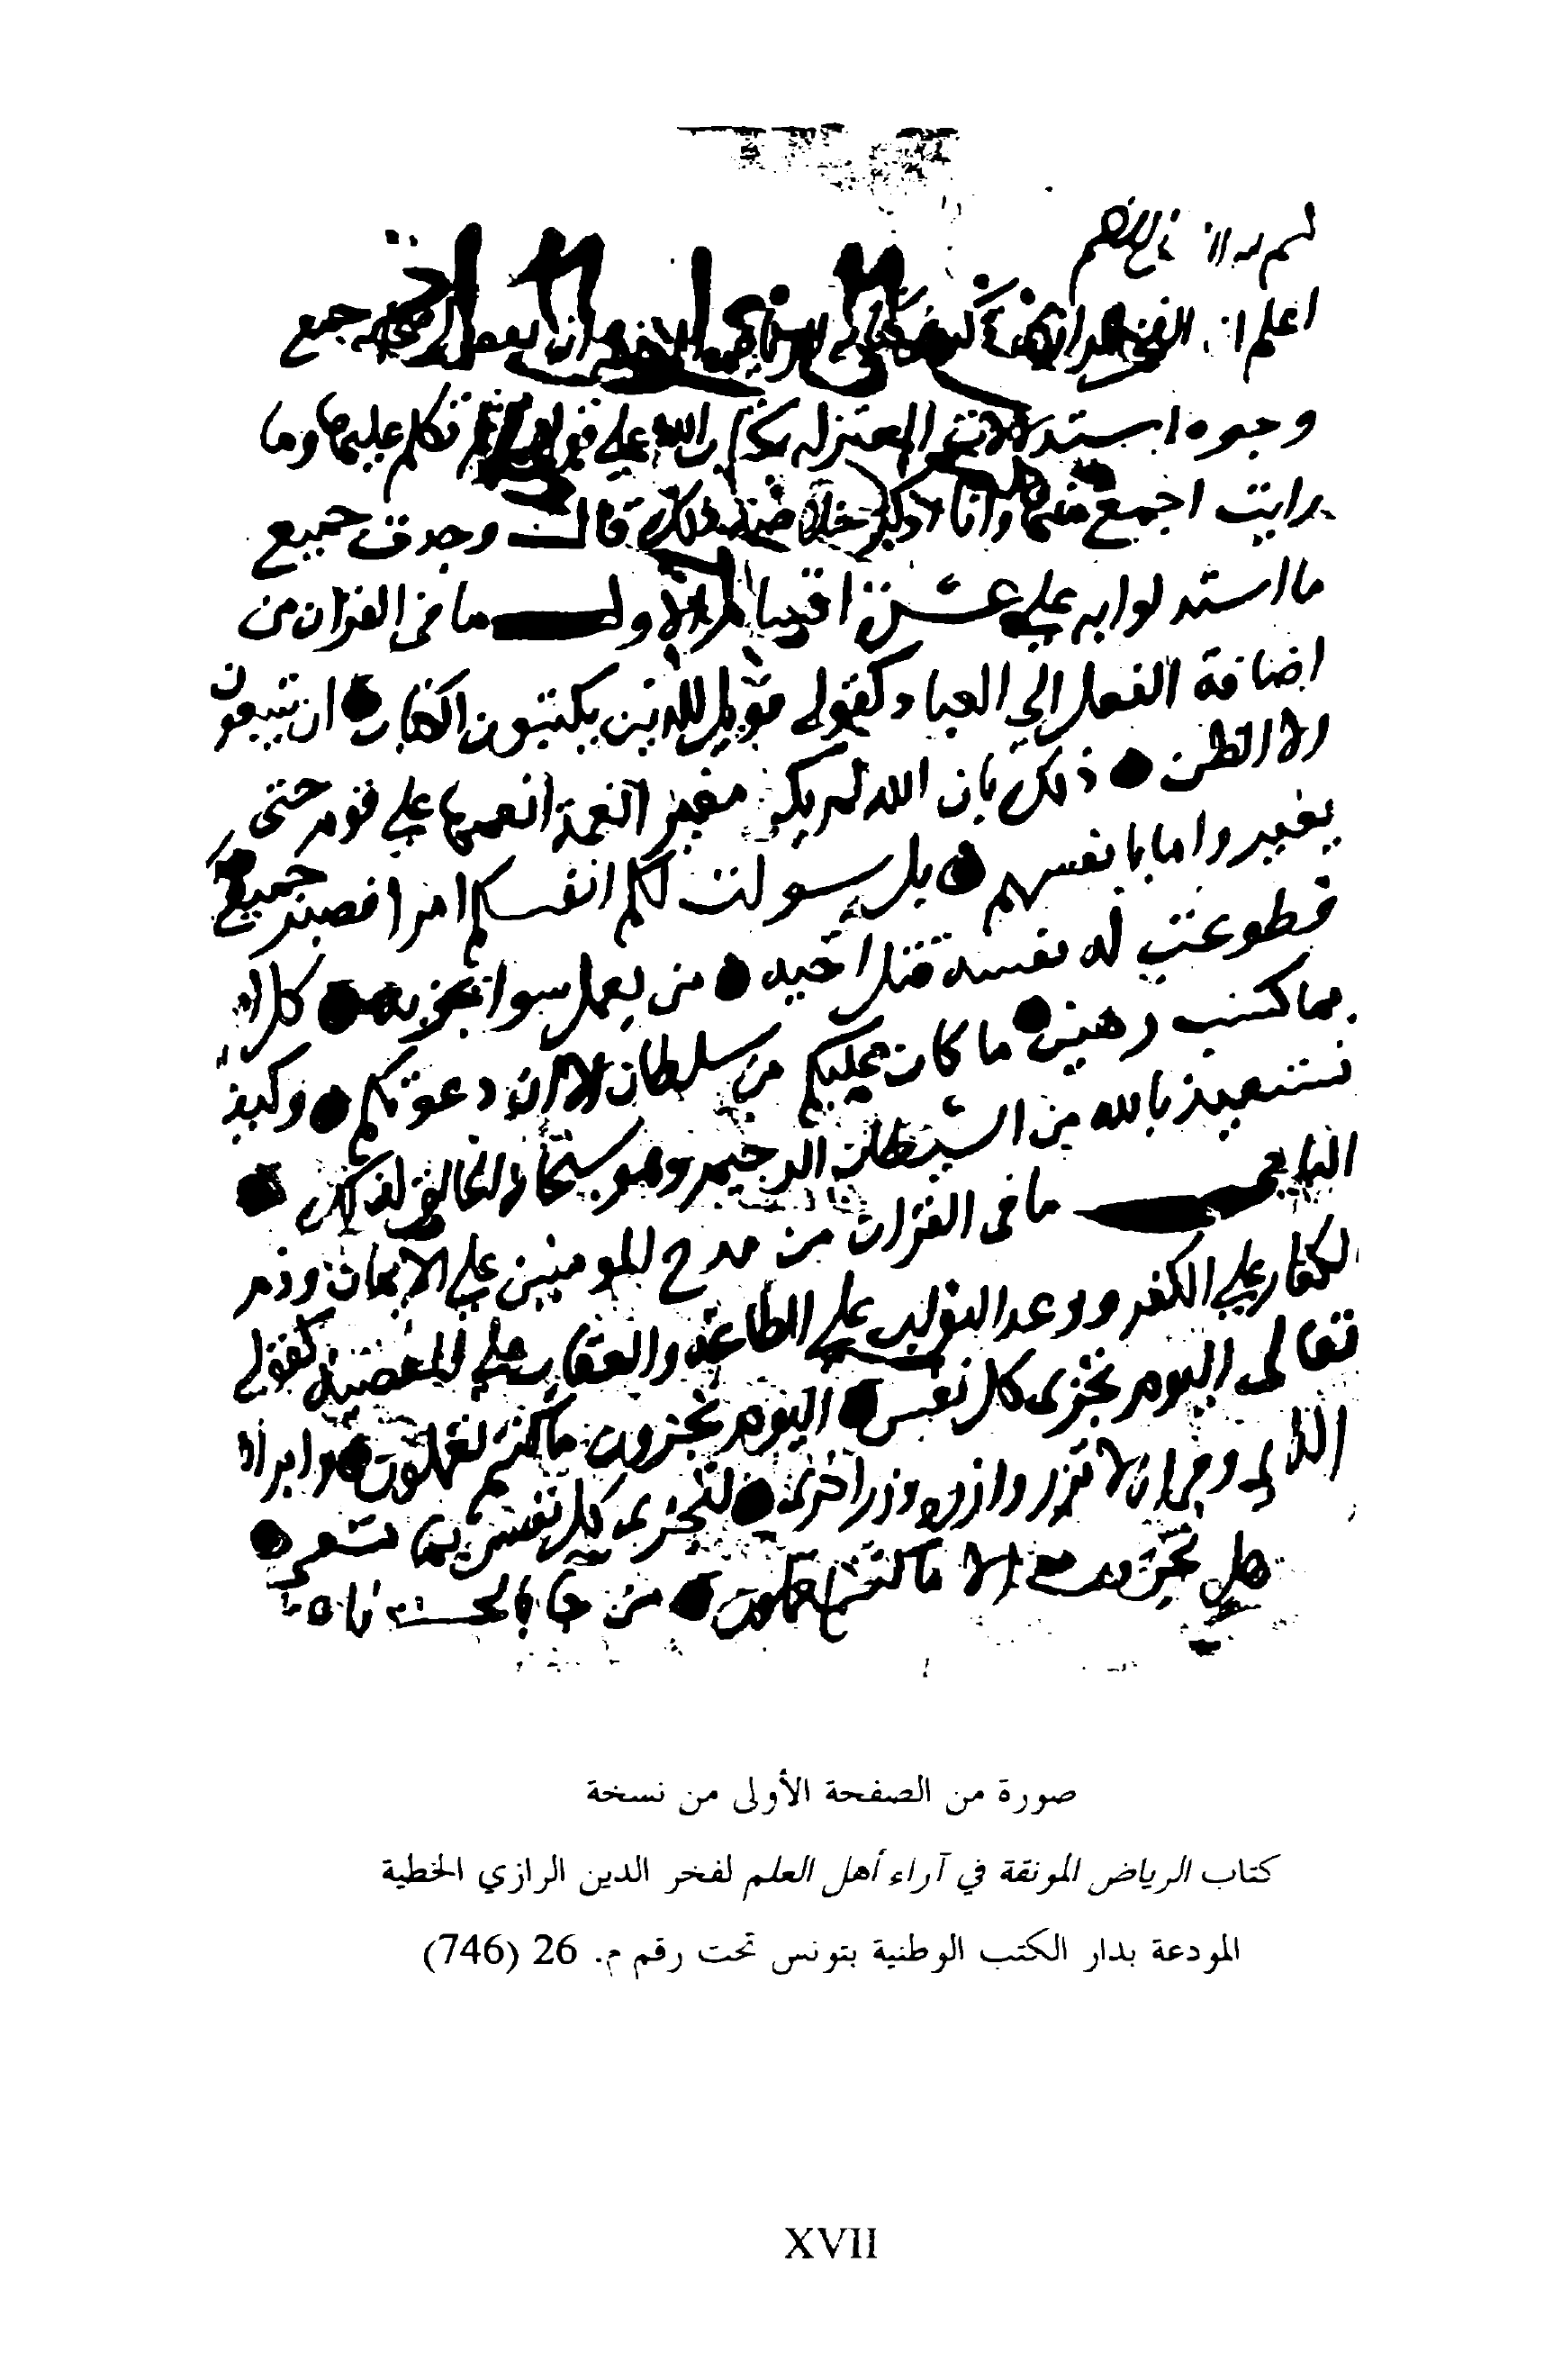 اعلم ان جميع
وجوه استدلالات المعتزله بكتاب الله على تكلم عليها وما
رايت اجمع منها وانا اذكر ذلك قال وجدت جميع
ما استدلوا به على عشرة اقسام الاول ما في القران من
اضافة الفعل الى العباد كقوله فويل للذين يكتبون الكتاب ان يتبعون
الا الظن ذلك بان الله لم يك مغيرا نعمة انعمها على قوم حتى
يغيروا ما بانفسهم بل سولت لكم انفسكم امرا فصبر جميع
فطوعت له نفسه قتل اخيه من يعمل سوا يجز به كل ا
بما كسب رهين ما كان عليكم من سلطان الا ان دعوتكم وكيف
نستعيذ بالله من الشيطان الرجيم وهو الخالق لذلك
ما في القران من مدح المومنين على الايمان وذم
الكفار على الكفر ووعد الثواب على الطاعة والعقاب على المعصية كقوله
تعالى اليوم تجزى كل نفس اليوم تجزون ما كنتم تعملون وابراه
الذي وفى ان لا تزر وازرة وزر اخرى لتجزى كل نفس بما تسعى
هل تجزون الا ما كنتم تعملون من جا بالحسنة
صورة من الصفحة الأولى من نسخة
كتاب الرياض المونقة في آراء أهل العلم لفخر الدين الرازي الخطية
المودعة بدار الكتب الوطنية بتونس تحت رقم م. 26 (746)
XVII